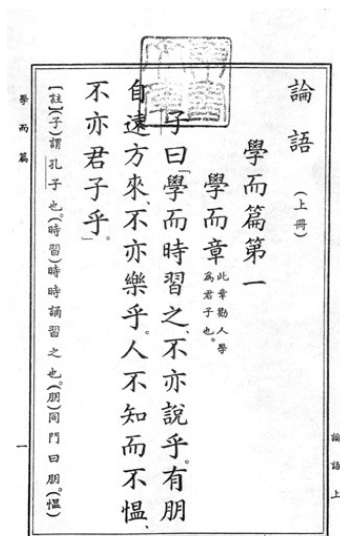 論語（上冊）
學而篇第一
學而章 此章勸人學
為君子也。
子曰「學而時習之、不亦說乎。有朋
自遠方來、不亦樂乎。人不知而不慍、
不亦君子乎。」
【註】(子)謂孔子也。(時習)時時誦習之也。(朋)同門曰朋。(慍)
學而篇
一
論語上